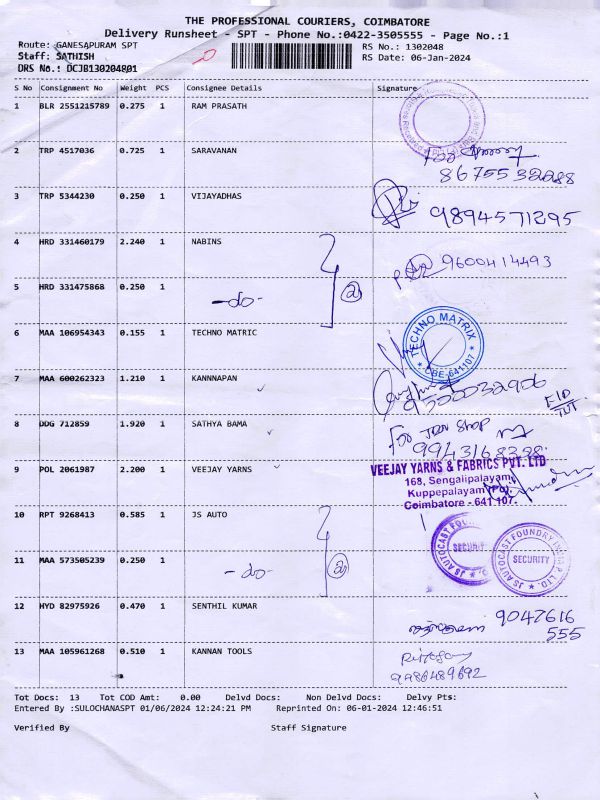 THE PROFESSIONAL COURIERS, COIMBATORE
Delivery Runsheet - SPT - Phone No.:0422-3505555 - Page No.:1
Route: GANESAPURAM SPT RS No.: 1302048
Staff: SATHISH RS Date: 06-Jan-2024
DRS No.: DCJB130204801
S No Consignment No Weight PCS Consignee Details Signature
1 BLR 2551215789 0.275 1 RAM PRASATH
2 TRP 4517036 0.725 1 SARAVANAN
8675532288
3 TRP 5344230 0.250 1 VIJAYADHAS 9894571295
4 HRD 331460179 2.240 1 NABINS 9600414493
5 HRD 331475868 0.250 1 -do- 2
6 MAA 106954343 0.155 1 TECHNO MATRIC TECHNO MATRIX CBE-641107.
7 MAA 600262323 1.210 1 KANNNAPAN 9500032906
8 DDG 712859 1.920 1 SATHYA BAMA
9943168398
9 POL 2061987 2.200 1 VEEJAY YARNS VEEJAY YARNS & FABRICS PVT. LTD
168, Sengalipalayam,
Kuppepalayam (Po),
Coimbatore - 641 107.
10 RPT 9268413 0.585 1 JS AUTO
JS AUTOCAST FOUNDRY INDIA P LTD. SECURITY
11 MAA 573505239 0.250 1 -do- 2
12 HYD 82975926 0.470 1 SENTHIL KUMAR 9047616
555
13 MAA 105961268 0.510 1 KANNAN TOOLS
9986489692
Tot Docs: 13 Tot COD Amt: 0.00 Delvd Docs: Non Delvd Docs: Delvy Pts:
Entered By :SULOCHANASPT 01/06/2024 12:24:21 PM Reprinted On: 06-01-2024 12:46:51
Verified By Staff Signature